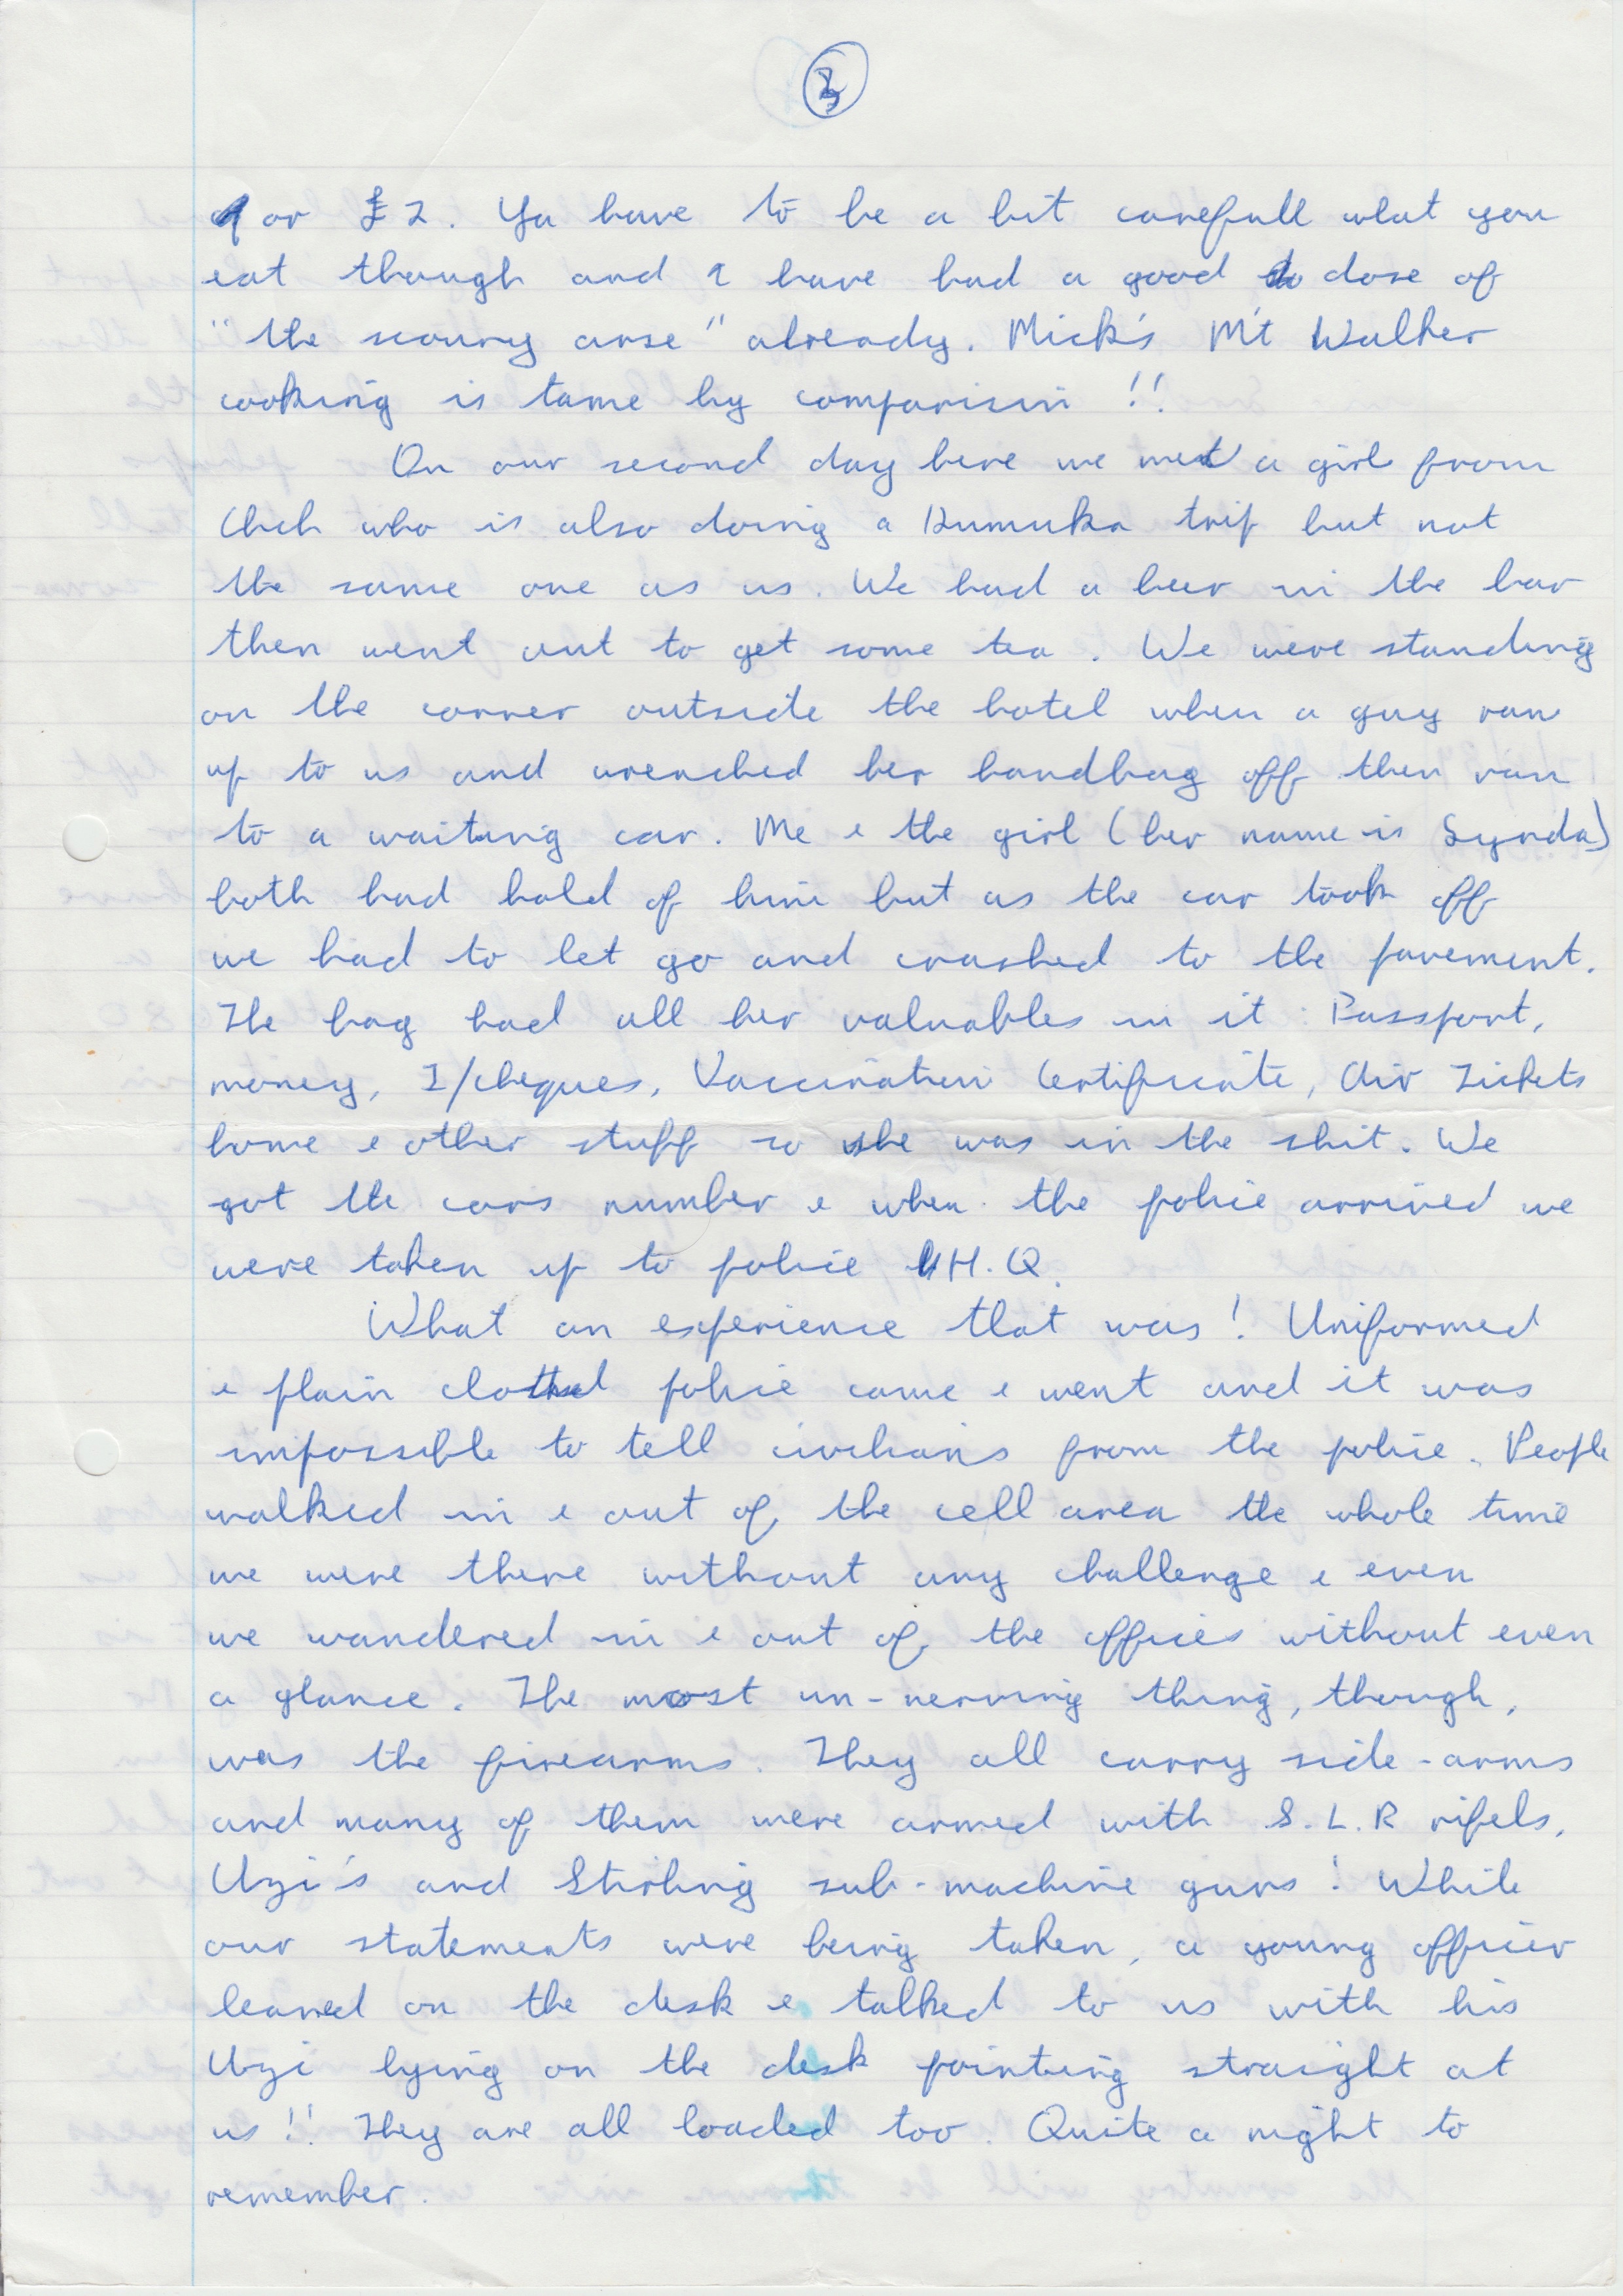 3
or £2. Ya have to be a bit carefull what you
eat though and I have had a good dose of
"the scoury arse" already. Mick's M't Walker
cooking is tame by comparisin !!
On our second day here we met a girl from
Chch who is also doing a Kumuka trip but not
the same one as us. We had a beer in the bar
then went out to get some tea. We were standing
on the corner outside the hotel when a guy ran
up to us and wrenched her handbag off then ran
to a waiting car. Me & the girl (her name is Lynda)
both had hold of him but as the car took off
we had to let go and crashed to the pavement.
The bag had all her valuables in it : Passport,
money, T/cheques, Vaccination Certificate, Air Tickets
home & other stuff so she was in the shit. We
got the cars number & when the police arrived we
were taken up to police H.Q.
What an experience that was! Uniformed
& plain clothed police came & went and it was
impossible to tell civilians from the police. People
walked in & out of the cell area the whole time
we were there without any challenge & even
we wandered in & out of the offices without even
a glance. The most un-nerving thing, though,
was the firearms. They all carry side-arms
and many of them were armed with S.L.R rifels,
Uzi's and Stirling sub-machine guns! While
our statements were being taken, a young officer
leaned on the desk & talked to us with his
Uzi lying on the desk pointing straight at
us!! They are all loaded too. Quite a night to
remember.